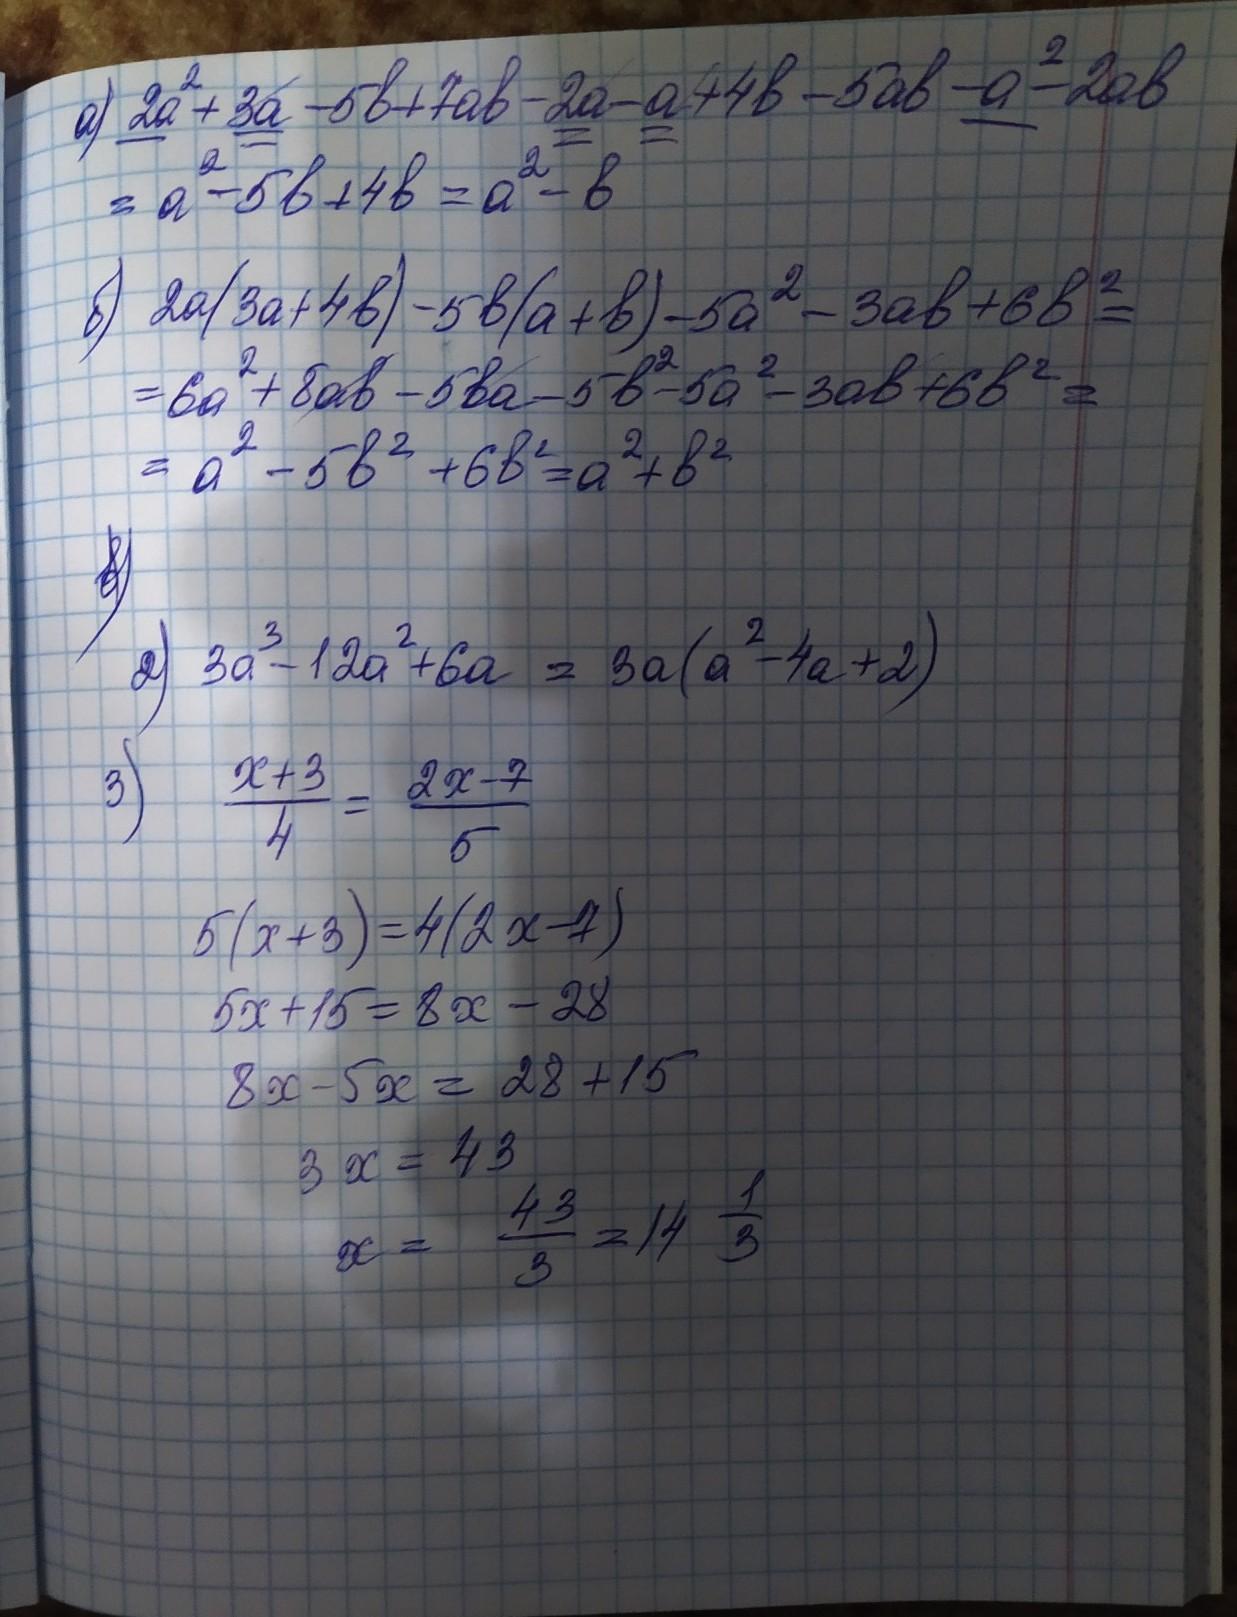 а) 2a² + 3a - 5b + 7ab - 2a - a + 4b - 5ab - a² - 2ab
= a² - 5b + 4b = a² - b
б) 2a(3a + 4b) - 5b(a + b) - 5a² - 3ab + 6b² =
= 6a² + 8ab - 5ba - 5b² - 5a² - 3ab + 6b² =
= a² - 5b² + 6b² = a² + b²
2) 3a³ - 12a² + 6a = 3a(a² - 4a + 2)
3) (x+3)/4 = (2x-7)/5
5(x+3) = 4(2x-7)
5x + 15 = 8x - 28
8x - 5x = 28 + 15
3x = 43
x = 43/3 = 14 1/3